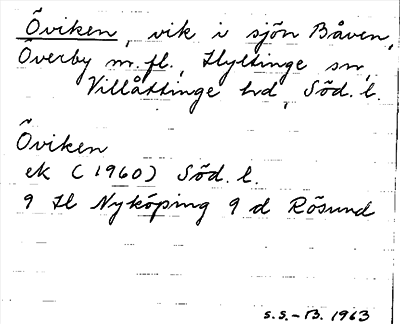 Öviken, vik i sjön Båven,
Överby m.fl., Hyltinge sn,
Villåttinge hd, Söd. l.
Öviken
ek (1960) Söd. l.
9 H Nyköping 9 d Rösund
S.S.-B. 1963